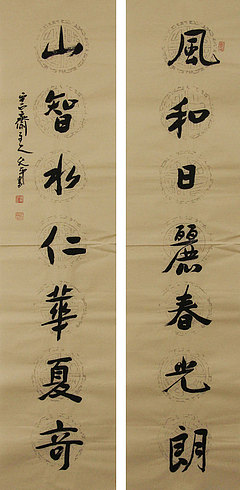 風和日麗春光朗
山智水仁華夏奇